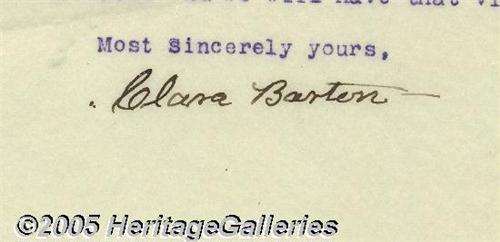 will have that vi
Most Sincerely yours,
Clara Barton
©2005 HeritageGalleries